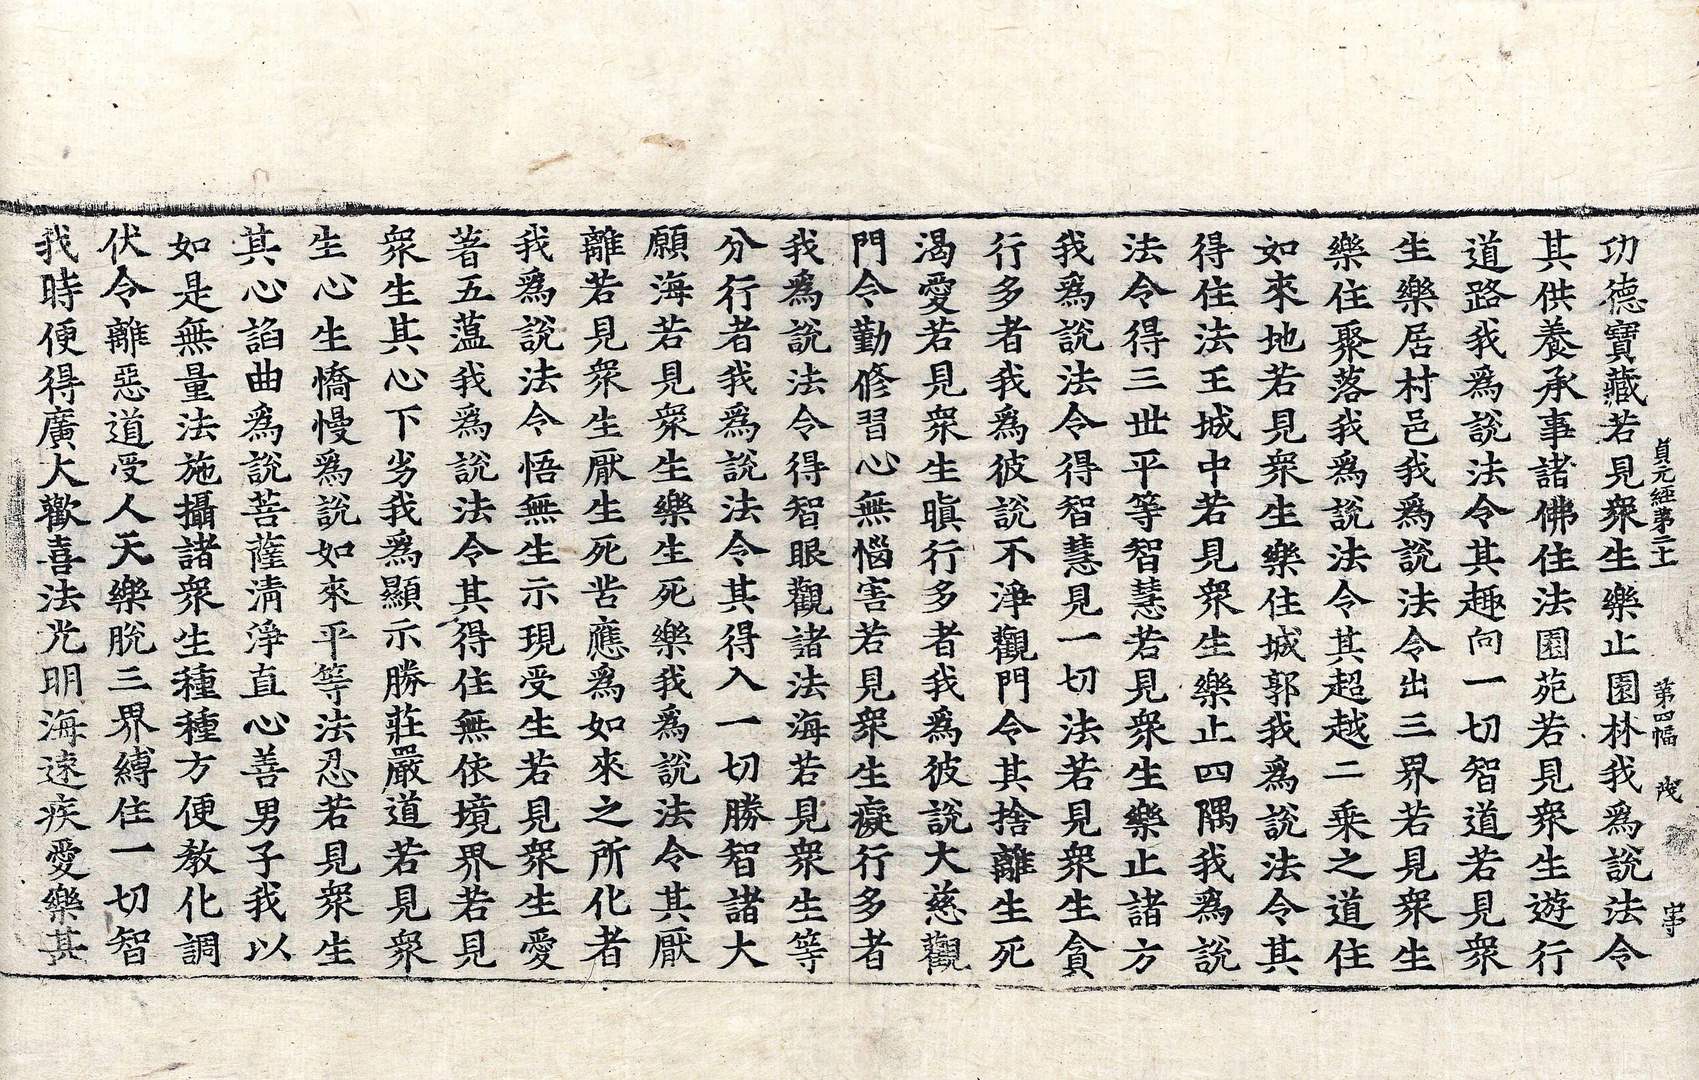 貞元經第二十　第四幅　宇
功德寶藏若見衆生樂止園林我爲說法令
其供養承事諸佛住法園苑若見衆生遊行
道路我爲說法令其趣向一切智道若見衆
生樂居村邑我爲說法令出三界若見衆生
樂住聚落我爲說法令其超越二乘之道住
如來地若見衆生樂住城郭我爲說法令其
得住法王城中若見衆生樂止四隅我爲說
法令得三世平等智慧若見衆生樂止諸方
我爲說法令得智慧見一切法若見衆生貪
行多者我爲彼說不淨觀門令其捨離生死
渴愛若見衆生瞋行多者我爲彼說大慈觀
門令勤修習心無惱害若見衆生癡行多者
我爲說法令得智眼觀諸法海若見衆生等
分行者我爲說法令其得入一切勝智諸大
願海若見衆生樂生死樂我爲說法令其厭
離若見衆生厭生死苦應爲如來之所化者
我爲說法令悟無生示現受生若見衆生愛
著五蕰我爲說法令其得住無依境界若見
衆生其心下劣我爲顯示勝莊嚴道若見衆
生心生憍慢爲說如來平等法忍若見衆生
其心諂曲爲說菩薩淸淨直心善男子我以
如是無量法施攝諸衆生種種方便教化調
伏令離惡道受人天樂脫三界縛住一切智
我時便得廣大歡喜法光明海速疾愛樂其